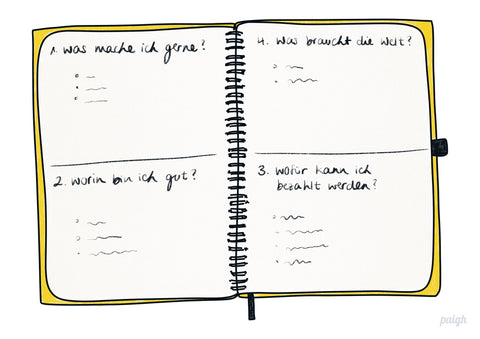 1. was mache ich gerne?
2. worin bin ich gut?
4. was braucht die Welt?
3. wofür kann ich
bezahlt werden?
paigh